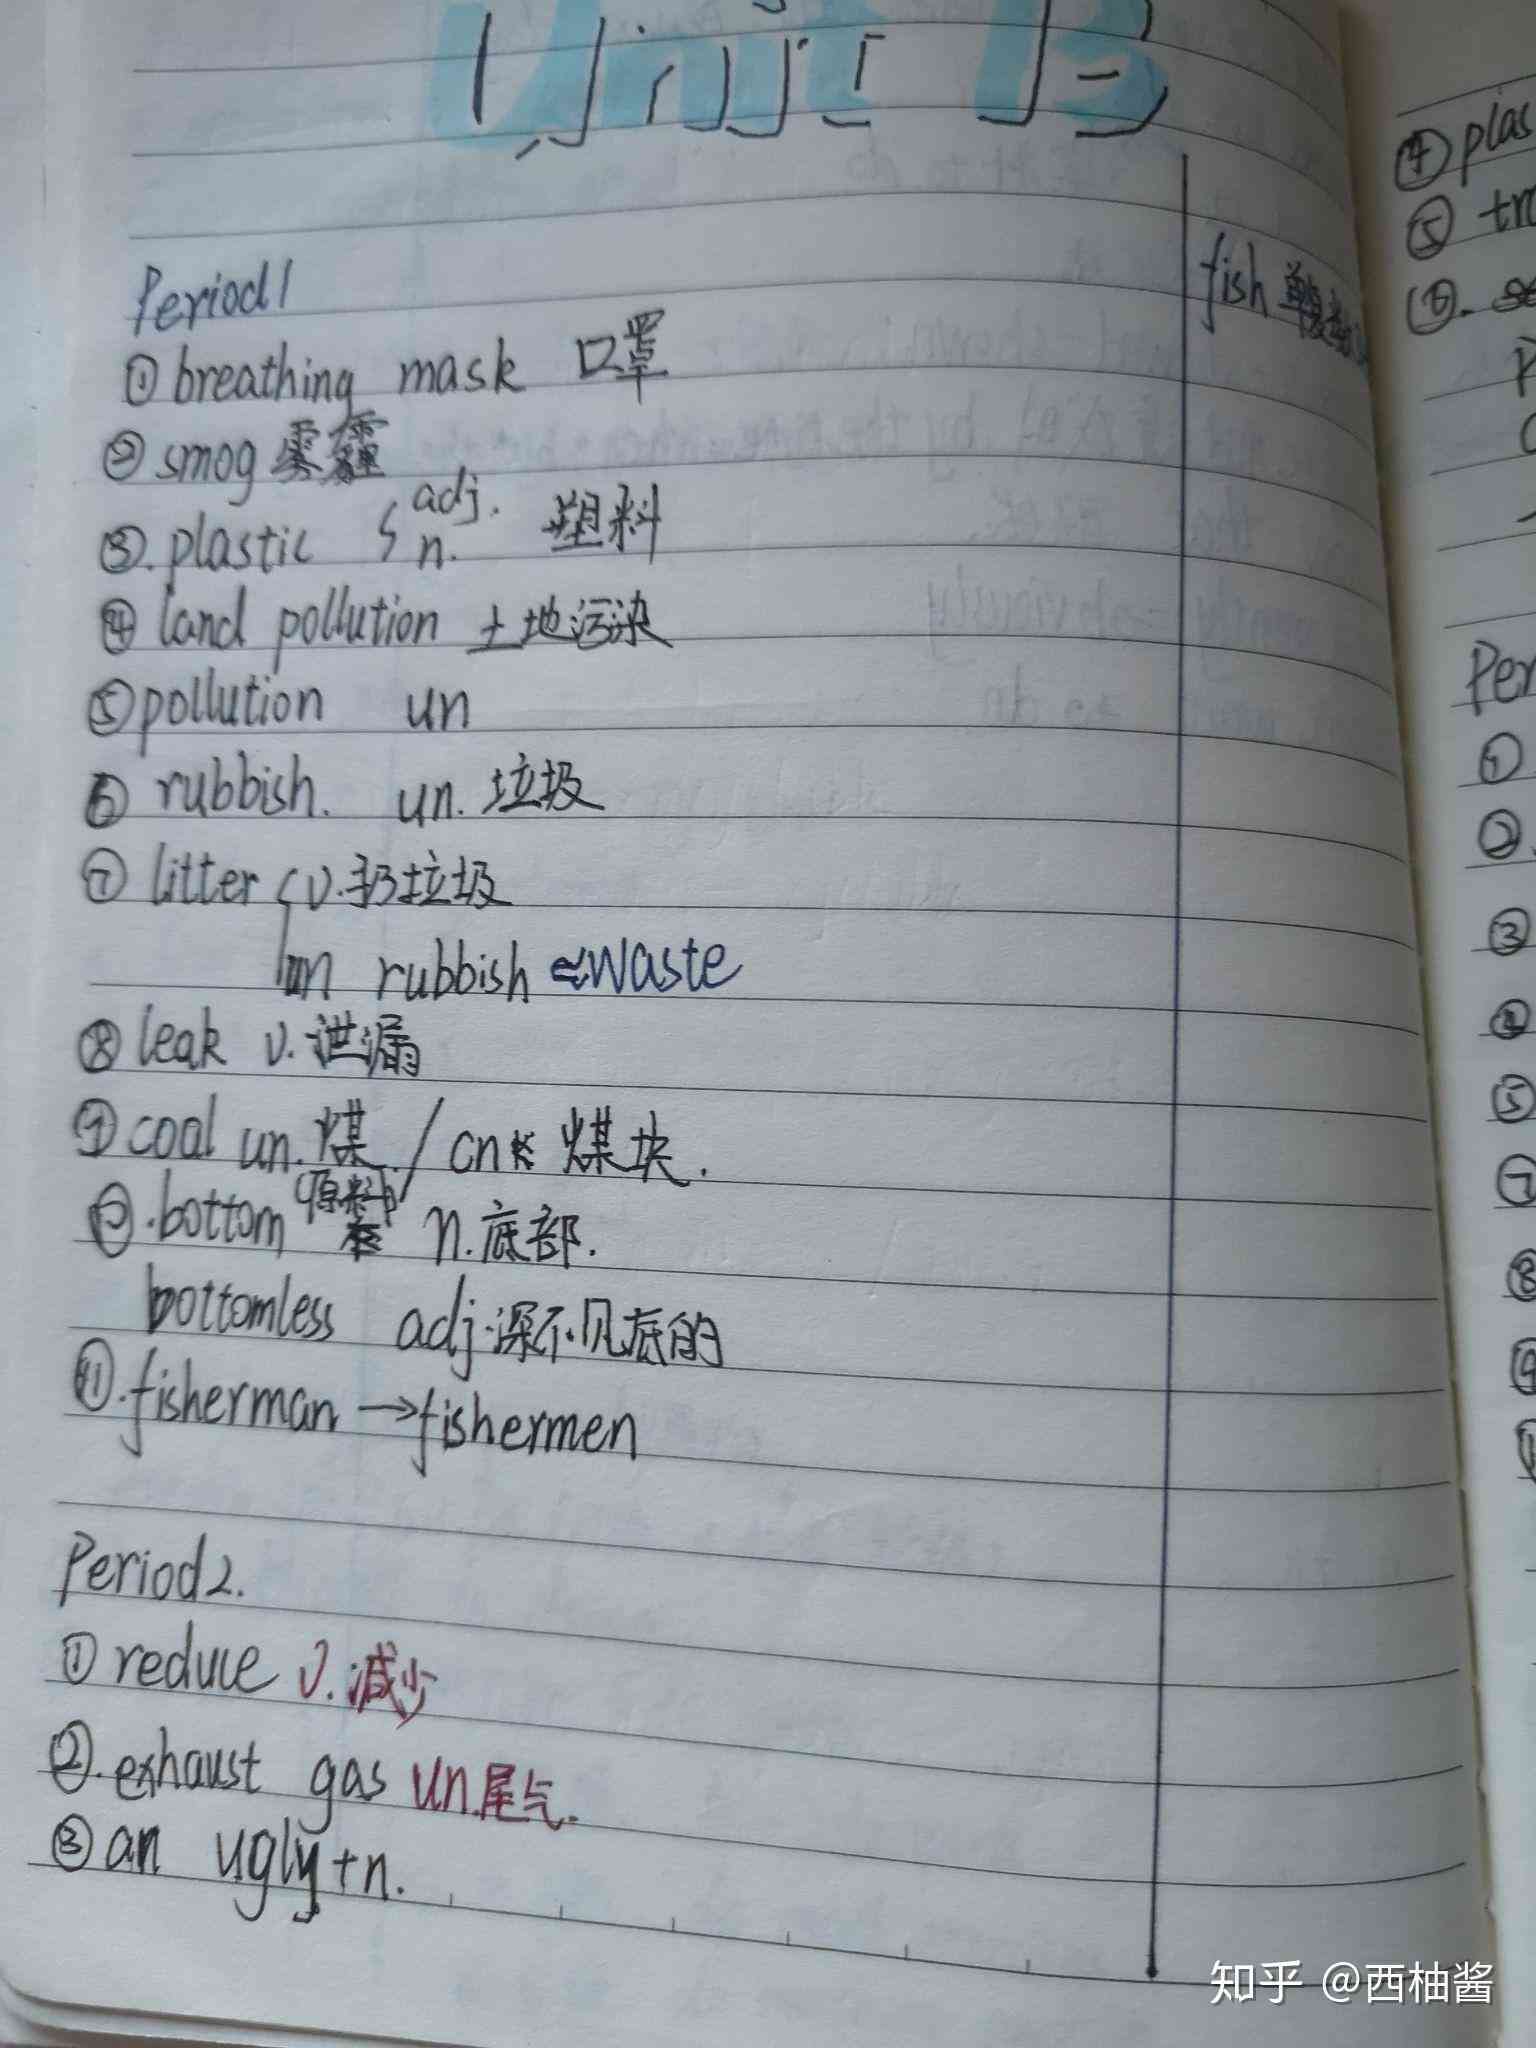 Unit 13
Period1
① breathing mask 口罩
② smog 雾霾
③. plastic { adj. n. 塑料
④ land pollution 土地污染
⑤ pollution un
⑥ rubbish. un. 垃圾
⑦ litter { v. 扔垃圾
un rubbish ≈ waste
⑧ leak v. 泄漏
⑨ coal un. 煤 / cn 煤块.
(原料)
⑩. bottom n. 底部.
bottomless adj. 深不见底的
⑪. fisherman → fishermen
Period2.
① reduce v. 减少
②. exhaust gas un. 尾气.
③ an ugly + n.
fish 单复
④ plas
⑤ tr
⑥.
Per
①
②.
③
④
⑤
⑦
⑧
⑨
知乎 @西柚酱